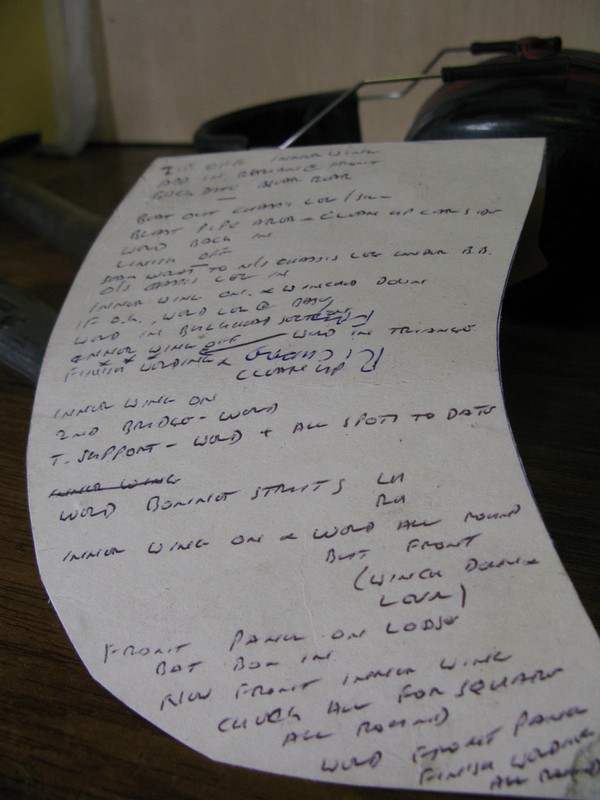 INNER WING
BLAST OUT CHASSIS LEG / SILL
BLAST PIPE AREA - CLEAN UP CAR SIDE
WELD BACK IN
LINISH OFF
SEAM WELD TO N/S CHASSIS LEG UNDER B.B.
O/S CHASSIS LEG IN
INNER WING ON & WINCHED DOWN
IF O.K., WELD LEG @ BASE
WELD IN BULKHEAD
INNER WING OFF WELD IN TRIANGLE
FINISH WELDING &
CLEAN UP
INNER WING ON
2ND BRIDGE - WELD
T. SUPPORT - WELD + ALL SPOTS TO DATE
INNER WING
WELD BONNET STRUTS LH
RH
INNER WING ON & WELD ALL ROUND
BUT FRONT
(WINCH DOWN &
LEVEL)
FRONT PANEL ON LOOSE
BAT BOX IN
RIV FRONT INNER WING
CHECK ALL FOR SQUARE
ALL ROUND
WELD FRONT PANEL
FINISH WELDING
ALL ROUND